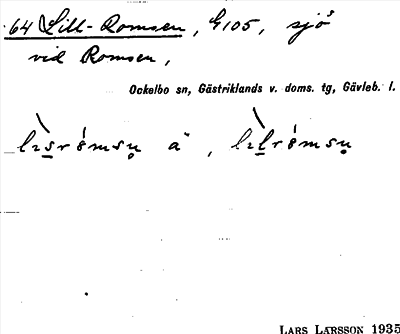 64 Lill-Romsen, G105, sjö
vid Romsen,
Ockelbo sn, Gästriklands v. doms. tg, Gävleb. l.
ä ,
LARS LARSSON 1935